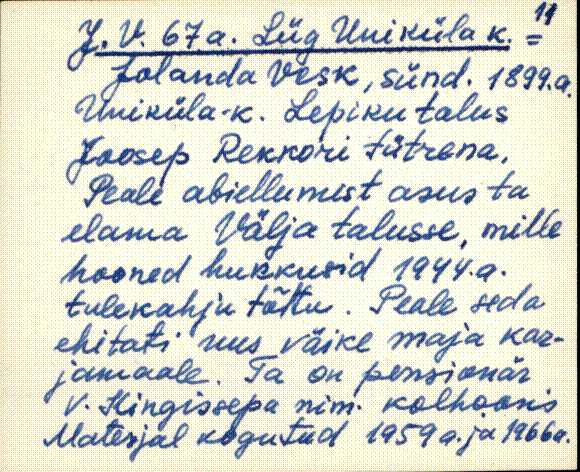 J. V. 67 a. Lüg Uniküla k. = 11
Jolanda Vesk, sünd. 1899.a.
Uniküla-k. Lepiku talus
Joosep Rekkori tütrena.
Peale abiellumist asus ta
elama Välja talusse, mille
hooned hukkusid 1944.a.
tulekahju tõttu. Peale seda
ehitati uus väike maja kar-
jamaale. Ta on pensionär
V. Kingissepa nim. kolhoosis
Materjal kogutud 1959 a. ja 1966a.